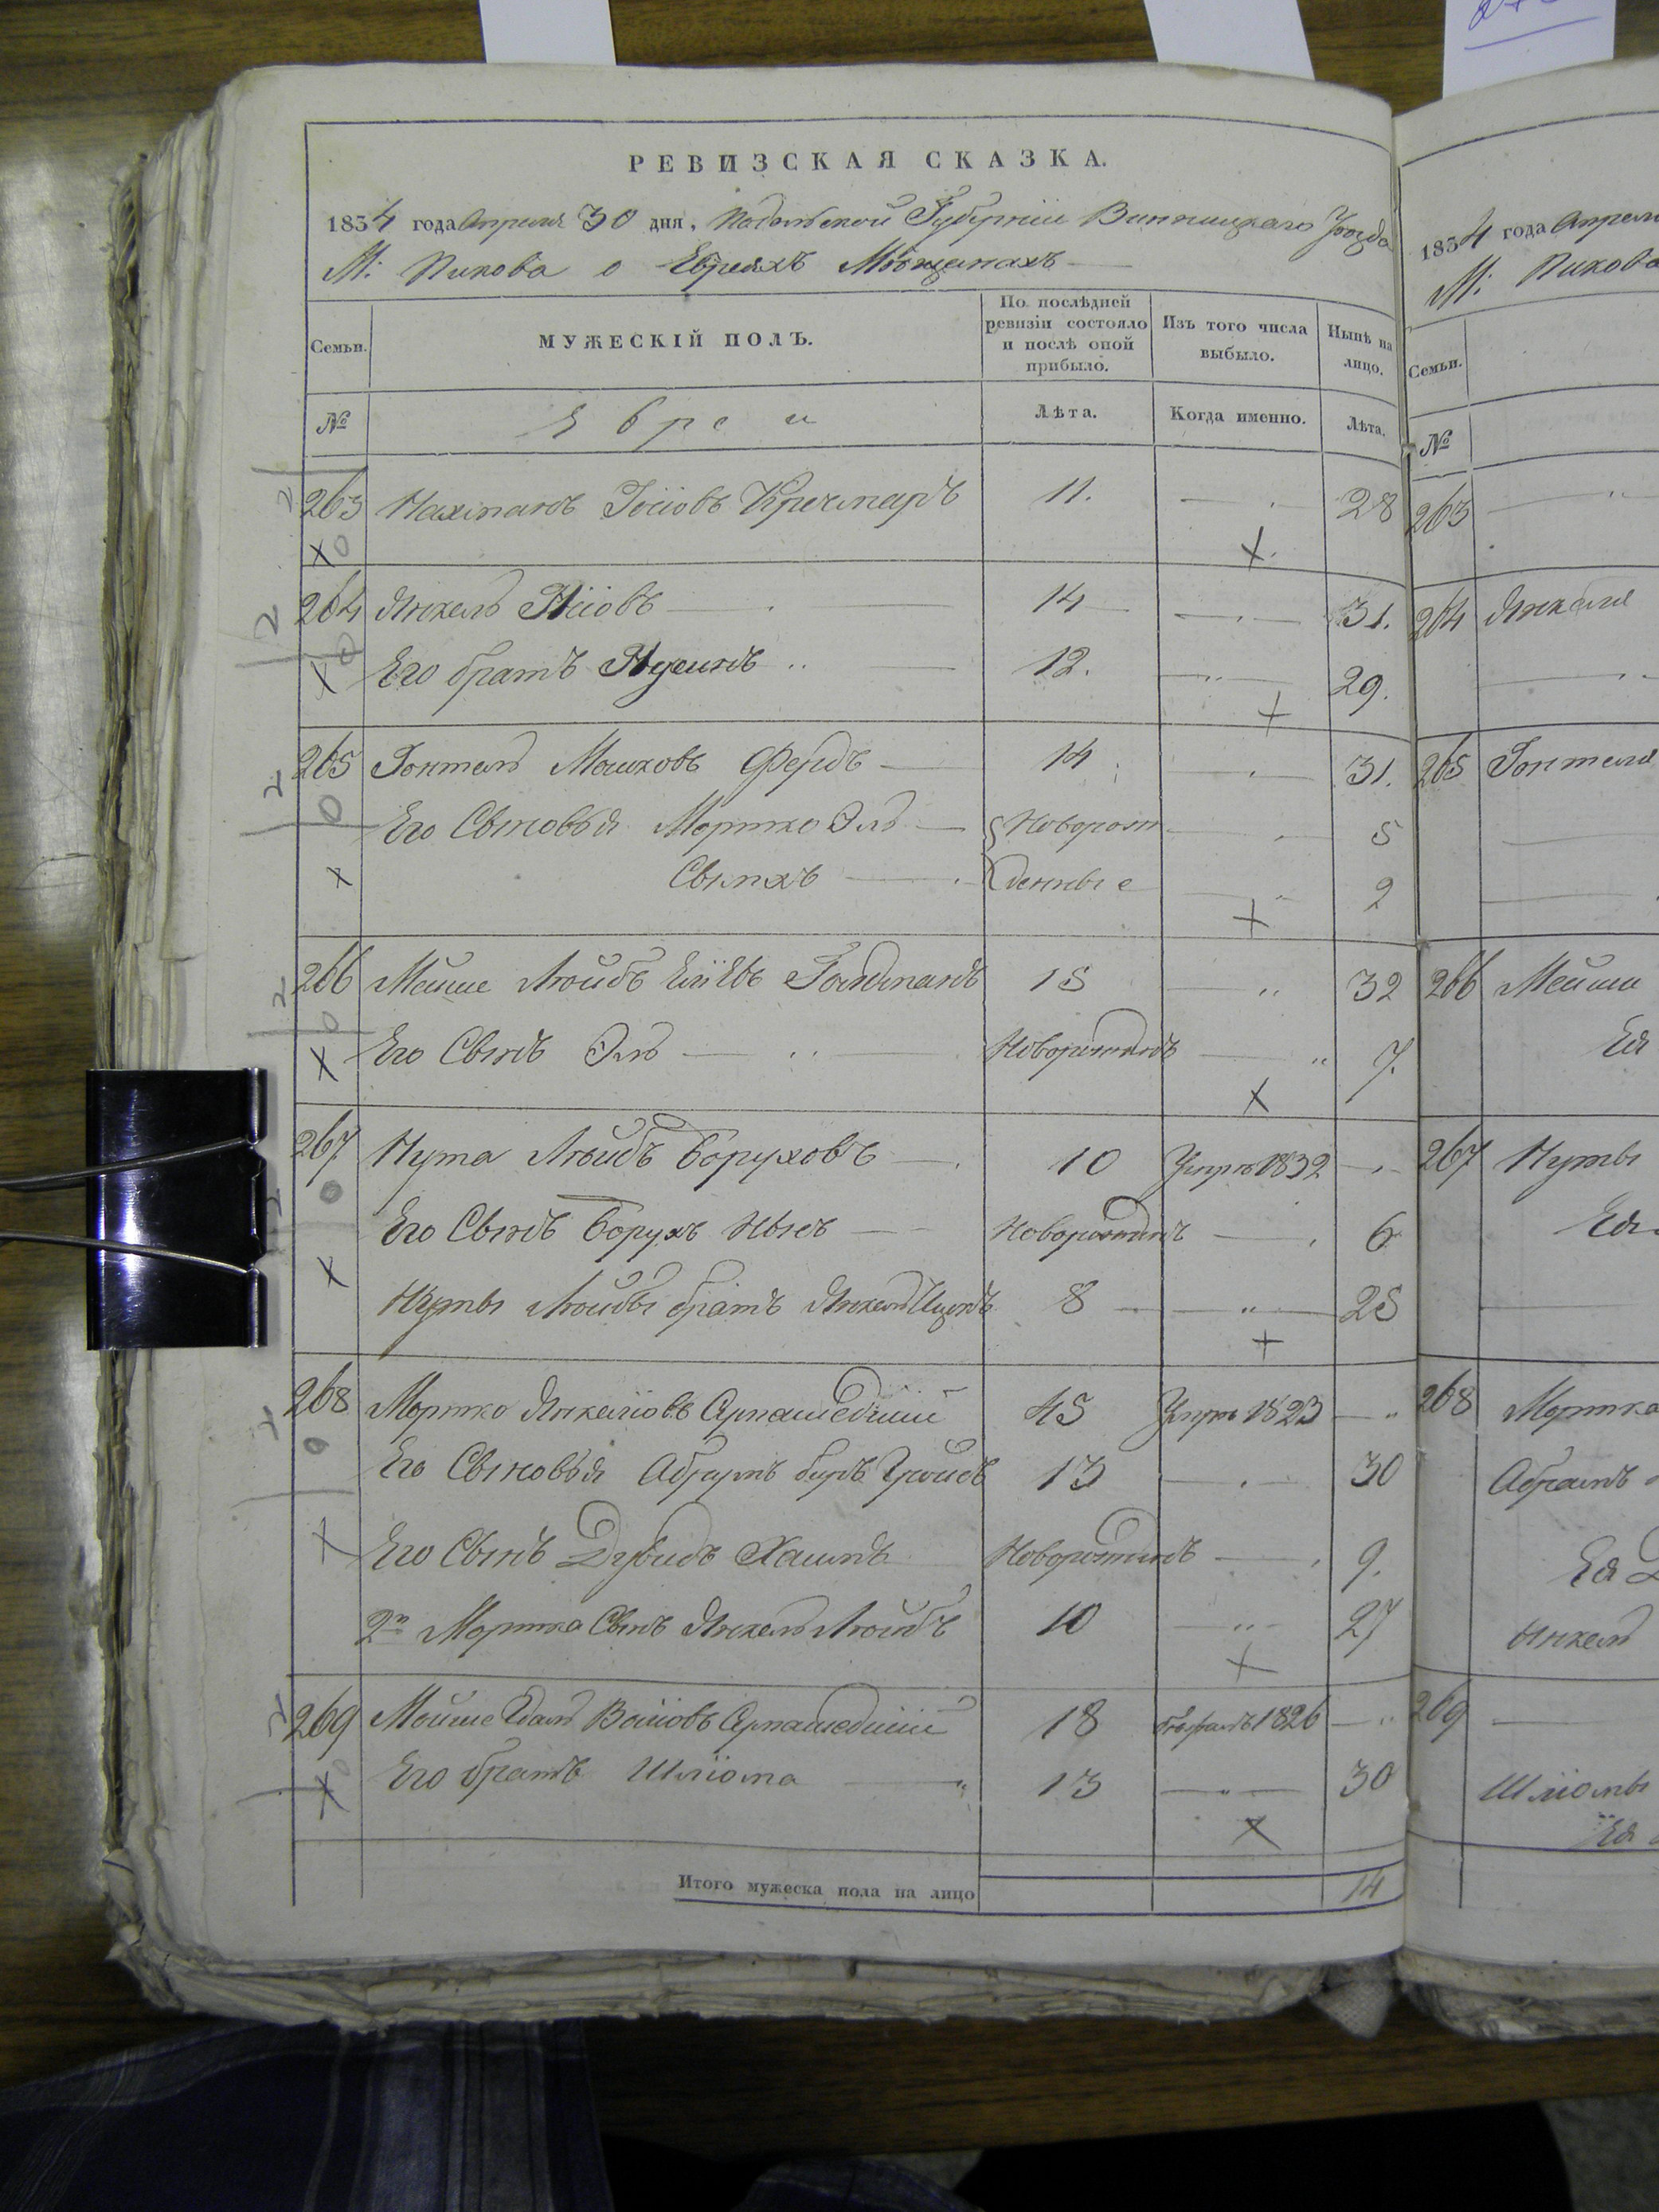 РЕВИЗСКАЯ СКАЗКА.
1834 года Апреля 30 дня, Подольской Губерніи Винницкаго Уезда
М: Пикова о Евреяхъ Мѣщанахъ
Семьи.
МУЖЕСКІЙ ПОЛЪ.
По послѣдней ревизіи состояло и послѣ оной прибыло.
Изъ того числа выбыло.
Нынѣ на лицо.
№
Евреи
Лѣта.
Когда именно.
Лѣта.
263 Нахманъ Іосіовъ Кречмаръ 11. 28
264 Янкель 14 31.
Его братъ 12. 29.
265 Мошковъ 14 31.
Его Сыновья Мортко Эль Новорож 5
Сымхъ денные 2
266 Мейше Лейбъ Голдманъ 15 32
Его Сынъ Эль Новорожденъ 7.
267 Нута Лейбъ Боруховъ 10 Умре 1832
Его Сынъ Борухъ Новорожденъ 6
Нуты Лейбы братъ Янкель Ицикъ 8 25
268 Мортко Янкеліовъ 45 Умре 1823
Его Сыновья Абрумъ 13 30
Его Сынъ Дувидъ Хаимъ Новорожденъ 9.
2й Мортка Сынъ Янкель Лейбъ 10 27
269 Мойше 18 бѣжалъ 1826
Его братъ Шліома 13 30
Итого мужеска пола на лицо 14
1834 года Апреля
М: Пикова
Семьи.
№
263
264 Янкеля
265
266 Мейши
Ея
267 Нуты
Ея
268 Мортка
Абрамъ
Ея
Янкель
269
Шліомы
Ея